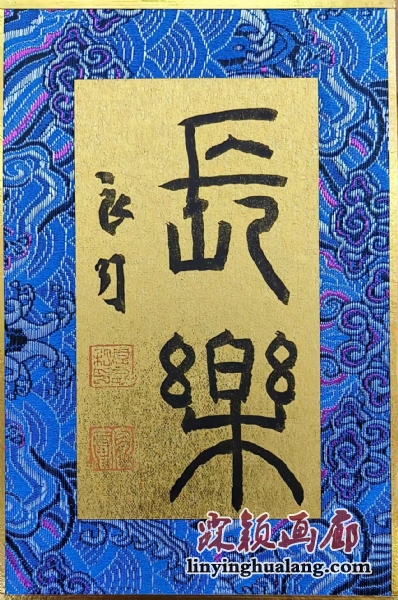 長樂
良
颖画廊
linyinghualang.com